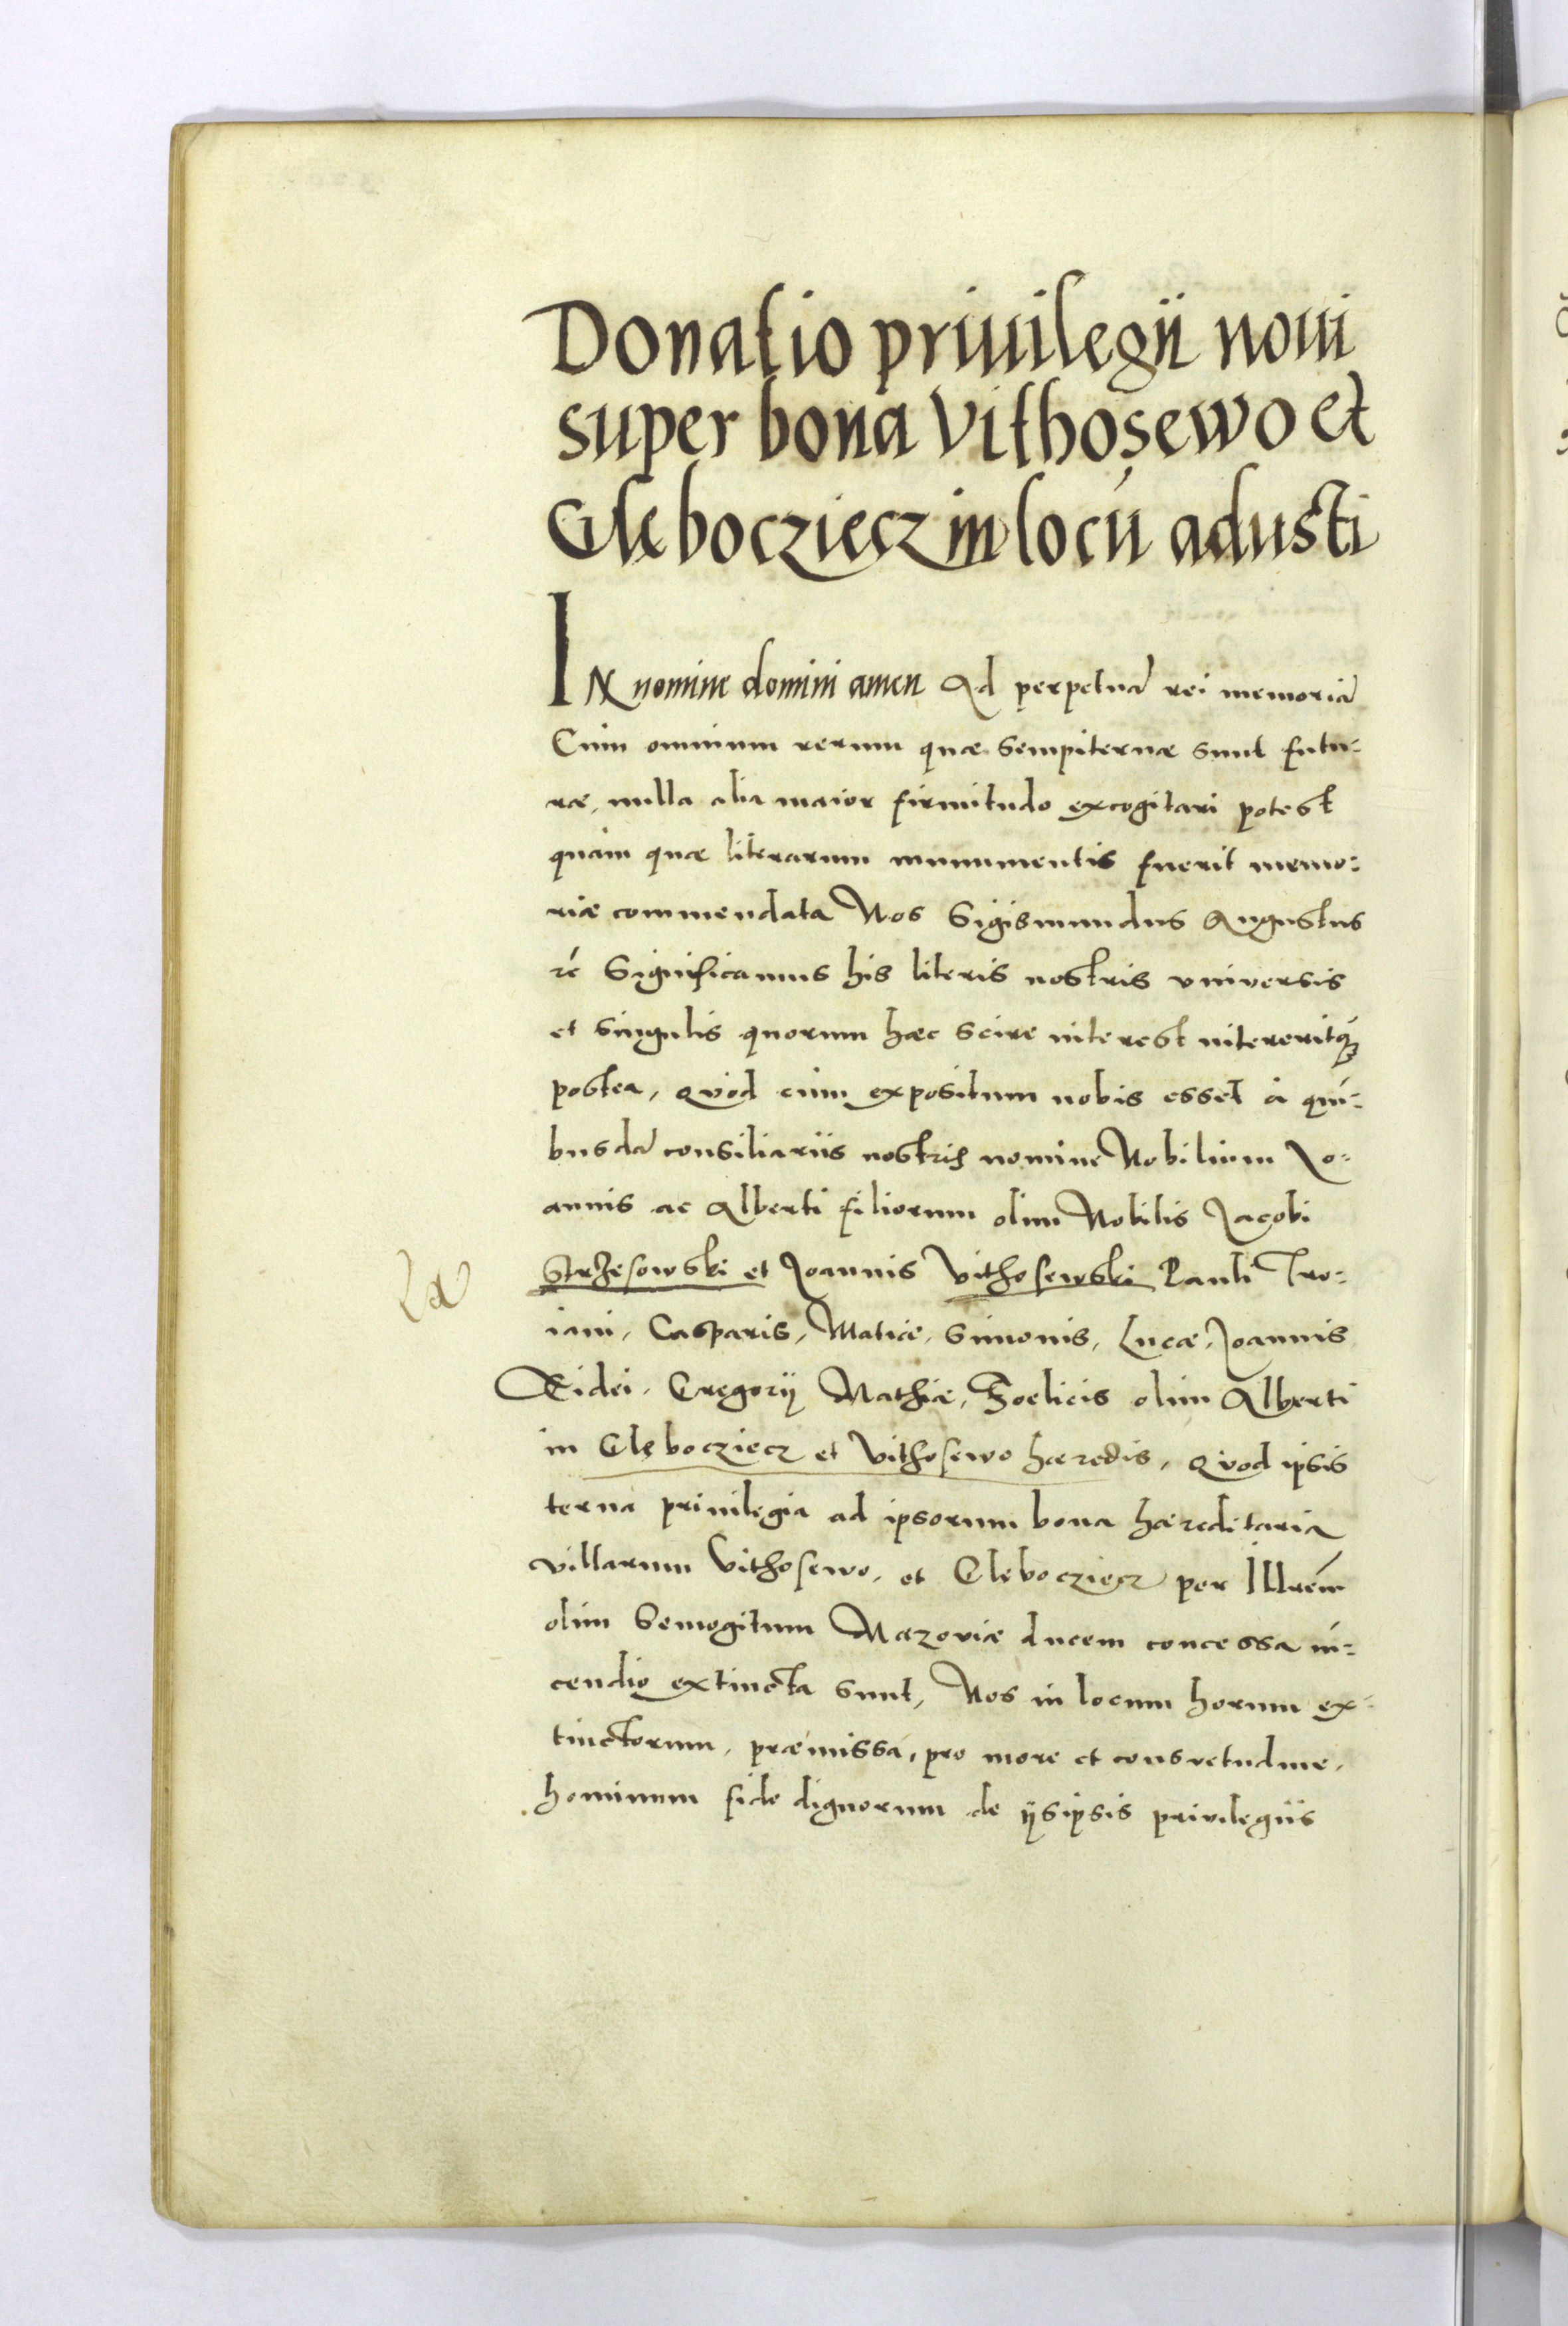 Donatio priuilegii noui
super bona Vithosewo et
Glębocziecz in locū adusti
IN nomine domini amen Ad perpetuā rei memoriā
Cùm omnium rerum quæ sempiternæ sunt futu-
ræ, nulla alia maior firmitudo excogitari potest
quàm quæ literarum munumentis fuerit memo-
riæ commendata Nos Sigismundus Augustus
rc̄ Significamus his literis nostris vniversis
et singulis quorum hæc scire interest intereritq3
postea, Qvòd cùm expositum nobis esset à qui-
busdā consiliariis nostris nomine Nobilium Io-
annis ac Alberti filiorum olim Nobilis Jacobi
Strzesowski et Joannis Vithosewski Pauli Tro-
iani, Casparis, Matiæ, Simonis, Lucæ, Joannis
Egidei, Gregorij Mathiæ, Foelicis olim Alberti
in Glębocziecz et Vithosewo hæredis, Qvod ipsis
terna priuilegia ad ipsorum bona hæreditaria
villarum Vithosewo, et Glębocziecz per Illrēm
olim Semogitum Mazoviæ ducem concessa in-
cendio extincta sunt, Nos in locum horum ex-
tinctorum, præmissa, pro more et consvetudine,
hominum fide dignorum de ijsipsis privilegiis